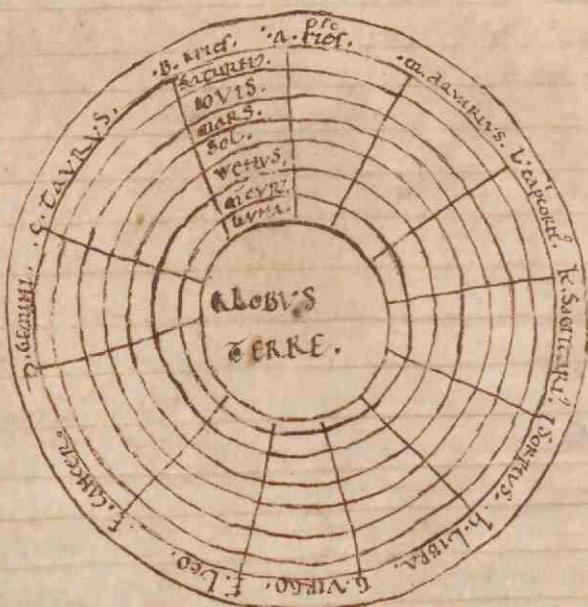 .B. Aries.
.A.
psc
.m. aquARIVS.
L. capcorn
K. SAGITTARI9
I SORPIVS.
h. LIBRA.
G. VIRGO.
F. Leo.
E. CANCER9
D. GEMINI.
.C. TAVRVS.
SATURN9.
IOVIS.
MARS.
SOL.
VENVS.
mcVR.
LVNA.
GLOBVS
TERRE.